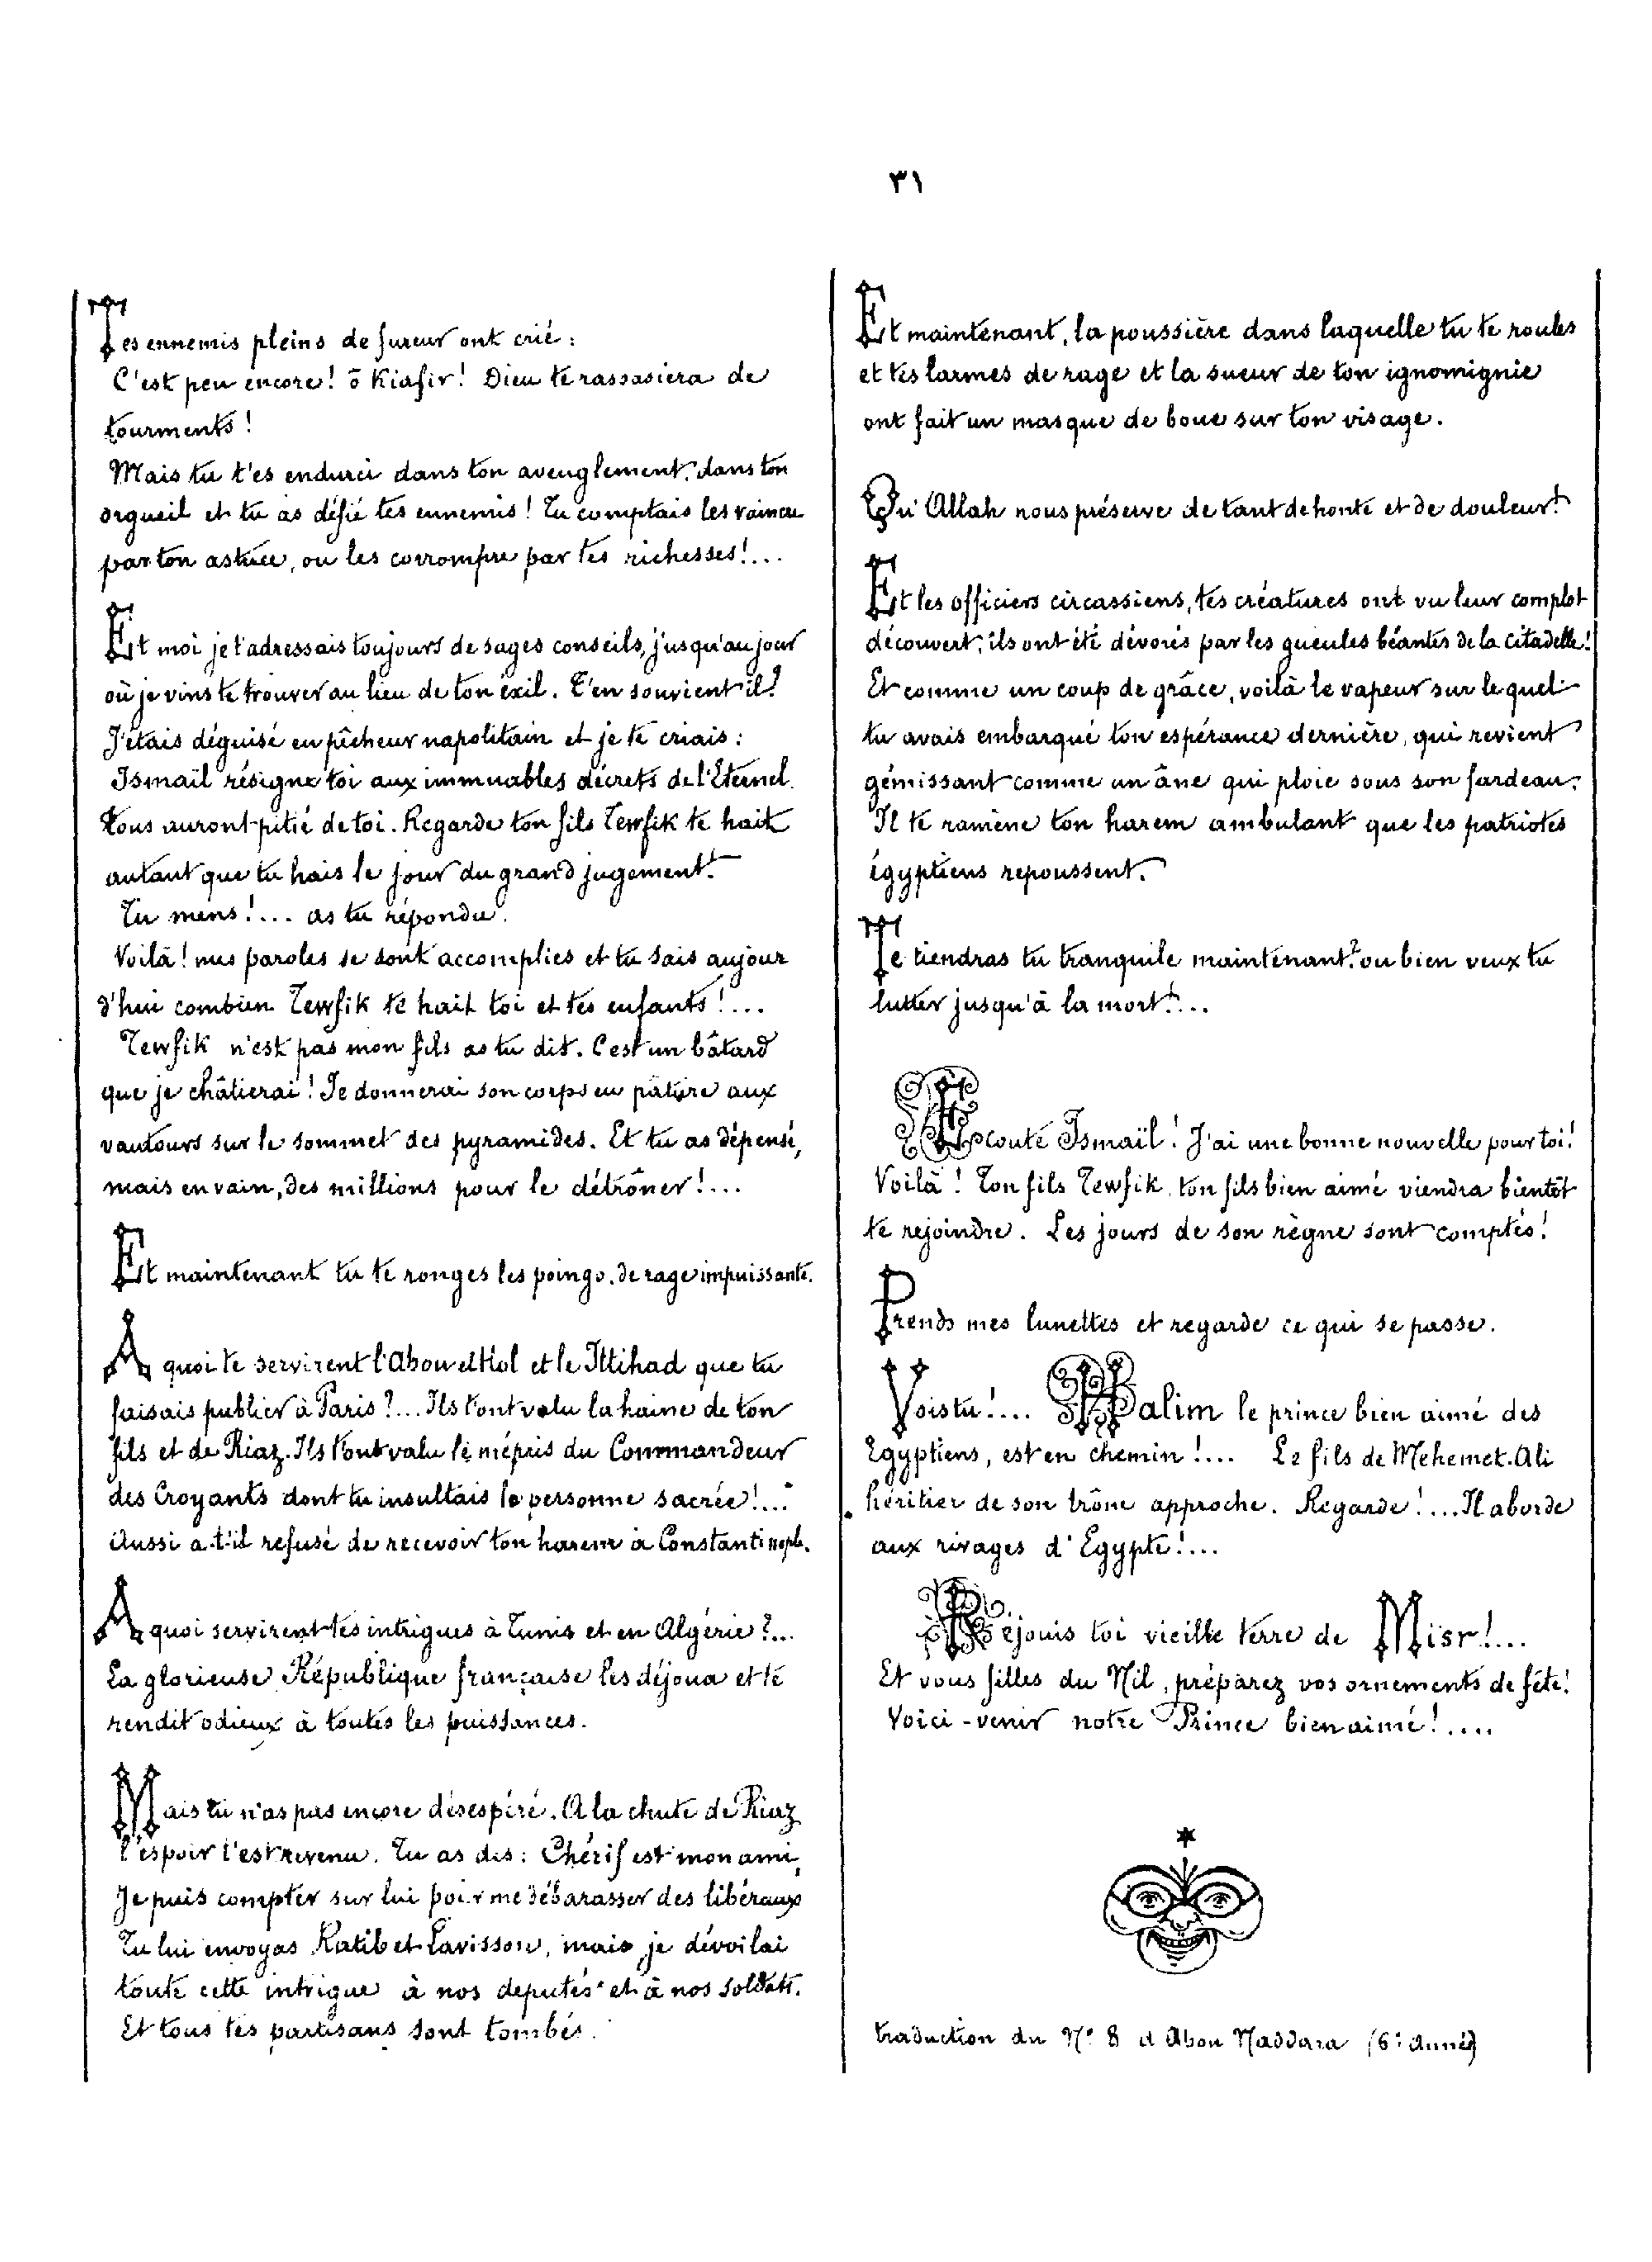 ٣١
Tes ennemis pleins de fureur ont crié :
C'est peu encore ! ô Kiafir ! Dieu te rassasiera de
tourments !
Mais tu t'es endurci dans ton aveuglement, dans ton
orgueil et tu as défié tes ennemis ! Tu comptais les vaincre
par ton astuce, ou les corrompre par tes richesses !...
Et moi je t'adressais toujours de sages conseils, jusqu'au jour
où je vins te trouver au lieu de ton éxil. T'en souvient il ?
J'étais déguisé en pêcheur napolitain et je te criais :
Ismaïl résigne toi aux immuables décrets de l'Eternel.
tous auront pitié de toi. Regarde ton fils Tewfik te hait
autant que tu hais le jour du grand jugement !
Tu mens !... as tu répondu.
Voilà ! mes paroles se sont accomplies et tu sais aujour
d'hui combien Tewfik te hait toi et tes enfants !...
Tewfik n'est pas mon fils as tu dit. C'est un bâtard
que je châtierai ! Je donnerai son corps en pâture aux
vautours sur le sommet des pyramides. Et tu as dépensé,
mais en vain, des millions pour le détrôner !...
Et maintenant tu te ronges les poings, de rage impuissante.
A quoi te servirent l'Abou el Hol et le Ittihad que tu
faisais publier à Paris ?... Ils t'ont valu la haine de ton
fils et de Riaz. Ils t'ont valu le mépris du Commandeur
des Croyants dont tu insultais la personne sacrée !...
Aussi a-t-il refusé de recevoir ton harem à Constantinople.
A quoi servirent tes intrigues à Tunis et en Algérie ?...
La glorieuse République française les déjoua et te
rendit odieux à toutes les puissances.
Mais tu n'as pas encore désespéré. A la chute de Riaz
l'espoir t'est revenu. Tu as dis : Chérif est mon ami,
Je puis compter sur lui pour me débarasser des libéraux
Tu lui envoyas Ratib et Lavisson, mais je dévoilai
toute cette intrigue à nos deputés et à nos soldats.
Et tous tes partisans sont tombés.
Et maintenant, la poussière dans laquelle tu te roules
et tes larmes de rage et la sueur de ton ignomignie
ont fait un masque de boue sur ton visage.
Qu'Allah nous préserve de tant de honte et de douleur !
Et les officiers circassiens, tes créatures ont vu leur complot
découvert ; ils ont été dévorés par les gueules béantes de la citadelle !
Et comme un coup de grâce, voilà le vapeur sur lequel
tu avais embarqué ton espérance dernière, qui revient
gémissant comme un âne qui ploie sous son fardeau.
Il te ramène ton harem ambulant que les patriotes
égyptiens repoussent.
Te tiendras tu tranquile maintenant ? ou bien veux tu
lutter jusqu'à la mort !...
Ecoute Ismaïl ! J'ai une bonne nouvelle pour toi !
Voilà ! Ton fils Tewfik, ton fils bien aimé viendra bientôt
te rejoindre. Les jours de son règne sont comptés !
Prends mes lunettes et regarde ce qui se passe.
Vois tu !... Halim le prince bien aimé des
Egyptiens, est en chemin !... Le fils de Mehemet. Ali
héritier de son trône approche. Regarde !... Il aborde
aux rivages d'Egypte !...
Réjouis toi vieille terre de Misr !...
Et vous filles du Nil, préparez vos ornements de fête !
Voici-venir notre Prince bien aimé !....
traduction du N° 8 d'Abou Naddara (6e Année)